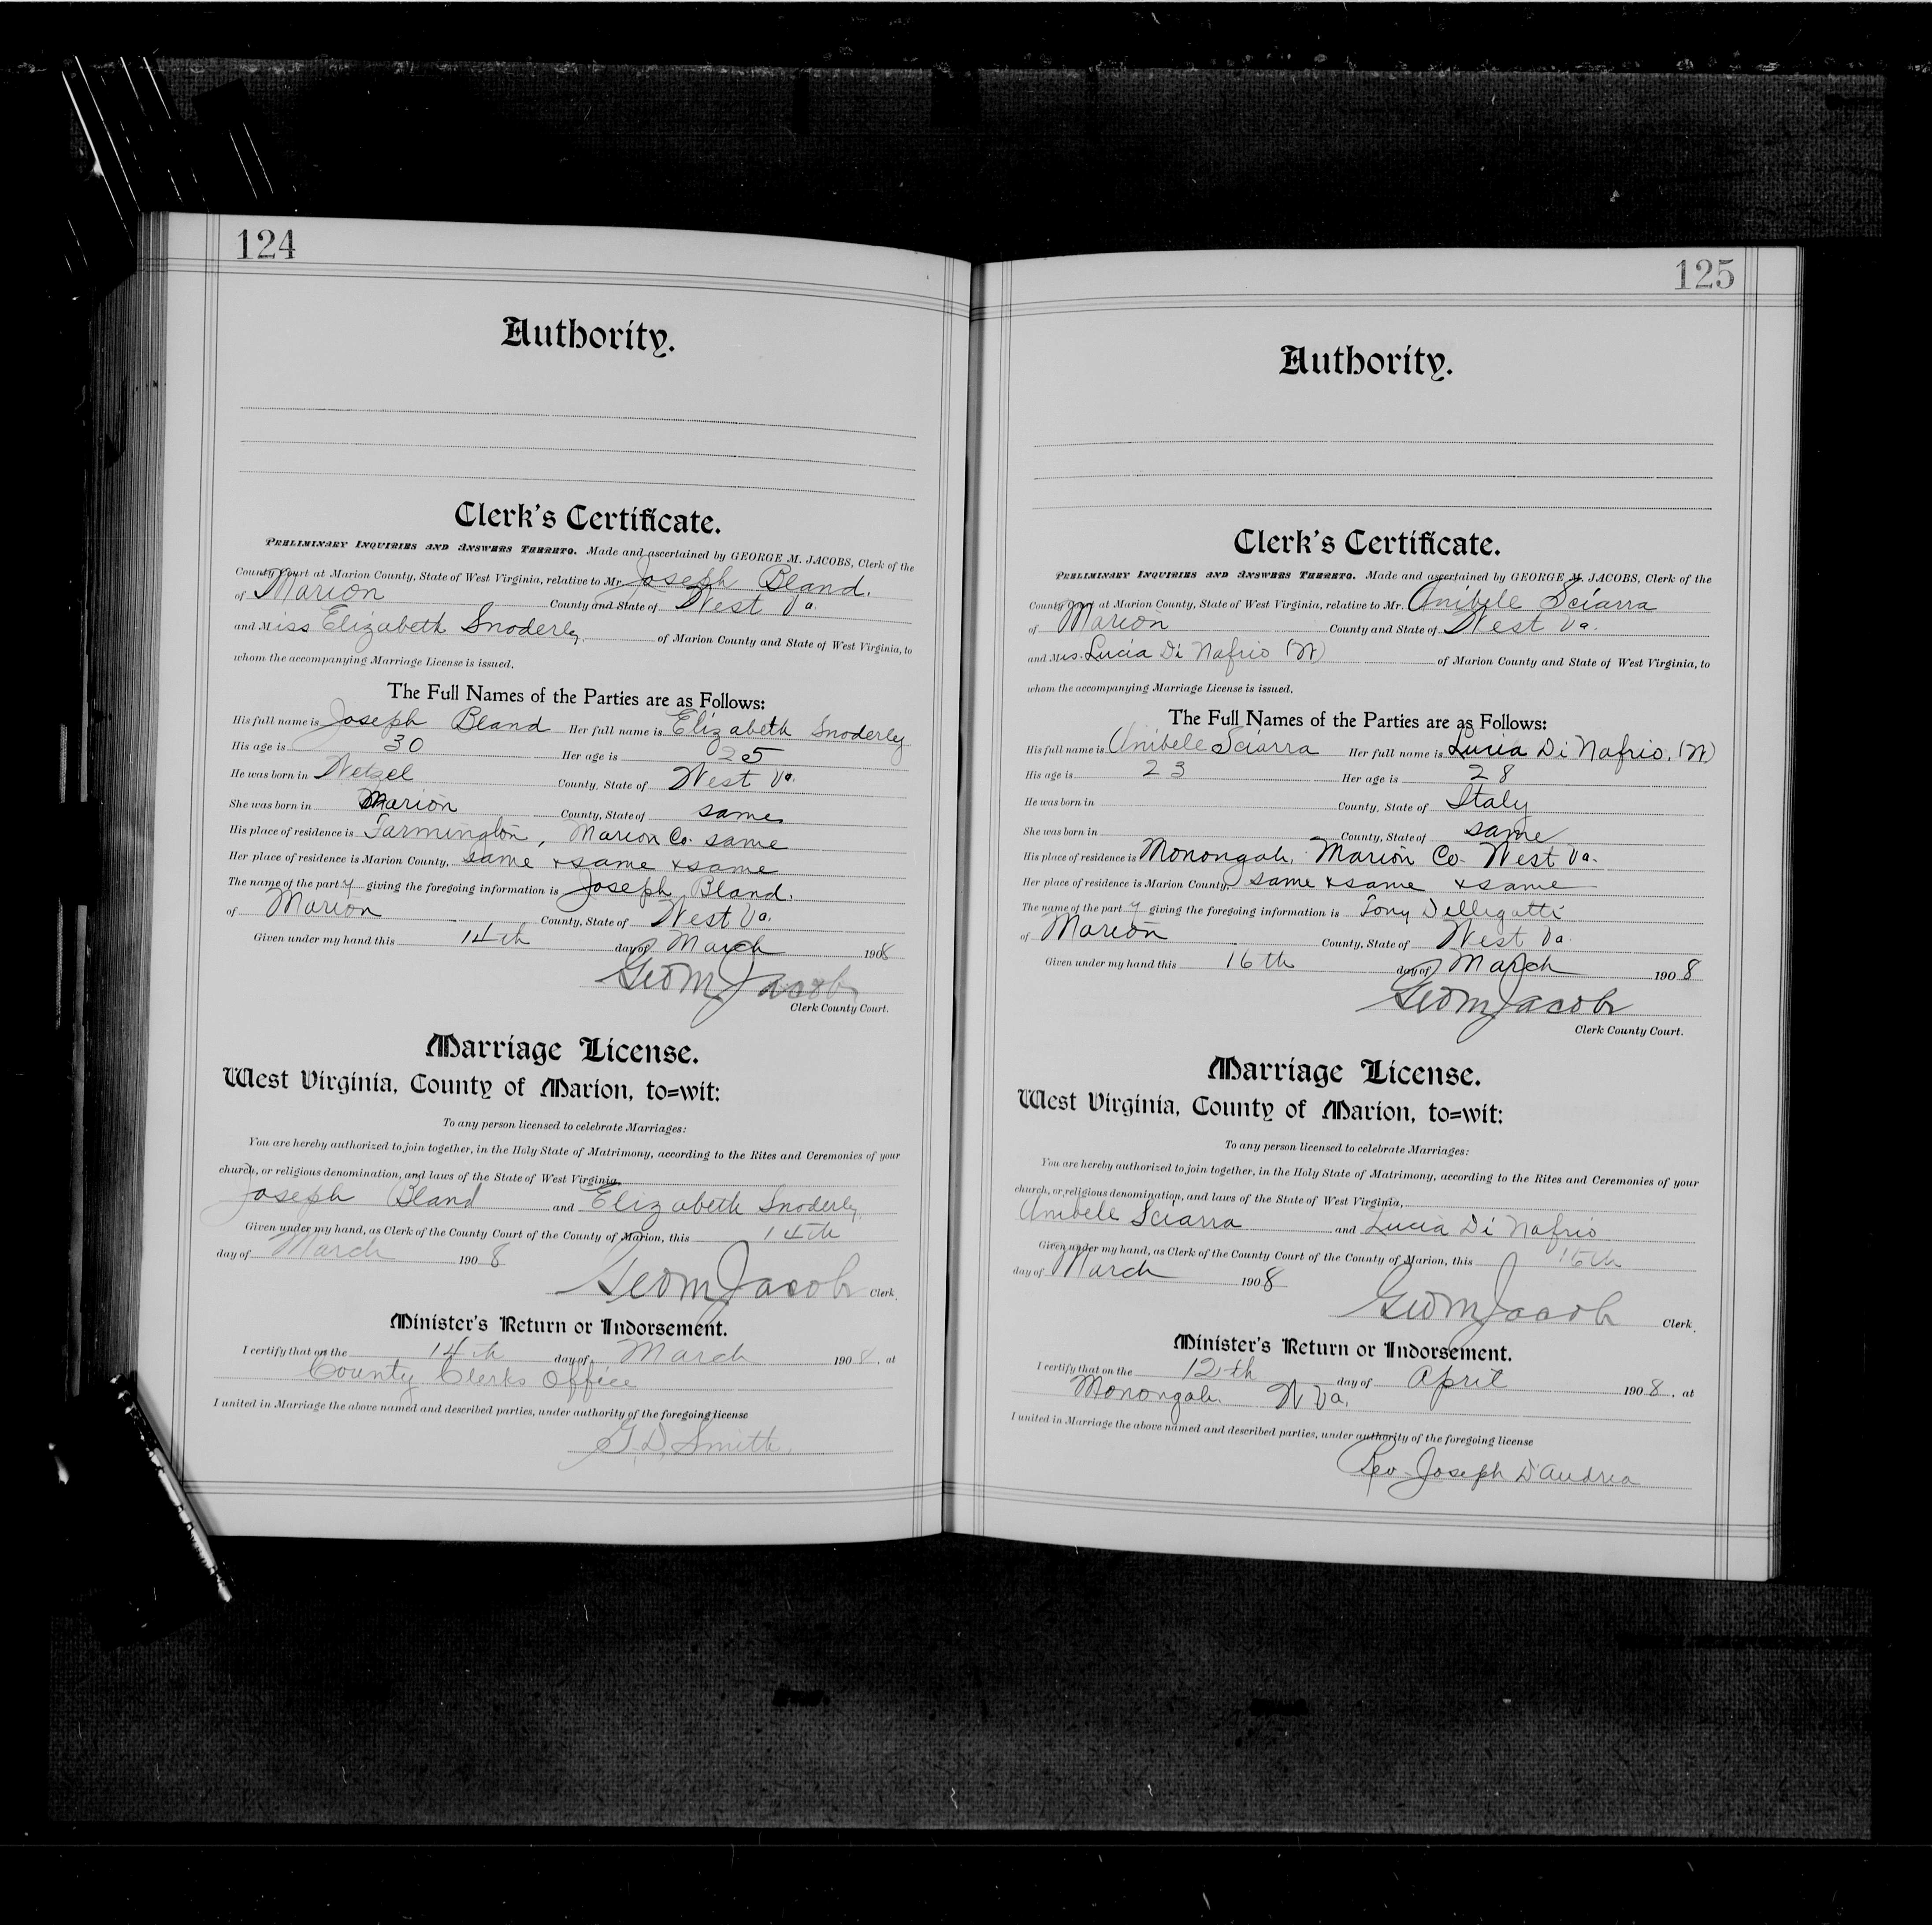 124
Authority.
Clerk's Certificate.
Preliminary Inquiries and Answers Thereto. Made and ascertained by GEORGE M. JACOBS, Clerk of the
County Court at Marion County, State of West Virginia, relative to Mr. Joseph Bland.
of Marion County and State of West Va.
and Miss Elizabeth Snoderly of Marion County and State of West Virginia, to
whom the accompanying Marriage License is issued.
The Full Names of the Parties are as Follows:
His full name is Joseph Bland Her full name is Elizabeth Snoderly
His age is 30 Her age is 25
He was born in Wetzel County, State of West Va.
She was born in Marion County, State of same
His place of residence is Farmington, Marion Co. same
Her place of residence is Marion County, same + same + same
The name of the party giving the foregoing information is Joseph Bland.
of Marion County, State of West Va.
Given under my hand this 14th day of March 1908
Geo M Jacobs
Clerk County Court.
Marriage License.
West Virginia, County of Marion, to=wit:
To any person licensed to celebrate Marriages:
You are hereby authorized to join together, in the Holy State of Matrimony, according to the Rites and Ceremonies of your
church, or religious denomination, and laws of the State of West Virginia,
Joseph Bland and Elizabeth Snoderly
Given under my hand, as Clerk of the County Court of the County of Marion, this 14th
day of March 1908
Geo M Jacobs Clerk.
Minister's Return or Indorsement.
I certify that on the 14th day of March 1908, at
County Clerks Office
I united in Marriage the above named and described parties, under authority of the foregoing license
G. D. Smith.
125
Authority.
Clerk's Certificate.
Preliminary Inquiries and Answers Thereto. Made and ascertained by GEORGE M. JACOBS, Clerk of the
County Court at Marion County, State of West Virginia, relative to Mr. Anibele Sciarra
of Marion County and State of West Va.
and Mrs. Lucia Di Nafrio (W) of Marion County and State of West Virginia, to
whom the accompanying Marriage License is issued.
The Full Names of the Parties are as Follows:
His full name is Anibele Sciarra Her full name is Lucia Di Nafrio. (W)
His age is 23 Her age is 28
He was born in County, State of Italy
She was born in County, State of same
His place of residence is Monongah, Marion Co. West Va.
Her place of residence is Marion County, same + same + same
The name of the party giving the foregoing information is Tony Dellegatti
of Marion County, State of West Va.
Given under my hand this 16th day of March 1908
Geo M Jacobs
Clerk County Court.
Marriage License.
West Virginia, County of Marion, to=wit:
To any person licensed to celebrate Marriages:
You are hereby authorized to join together, in the Holy State of Matrimony, according to the Rites and Ceremonies of your
church, or religious denomination, and laws of the State of West Virginia,
Anibele Sciarra and Lucia Di Nafrio
Given under my hand, as Clerk of the County Court of the County of Marion, this 16th
day of March 1908
Geo M Jacobs Clerk.
Minister's Return or Indorsement.
I certify that on the 12th day of April 1908, at
Monongah W Va.
I united in Marriage the above named and described parties, under authority of the foregoing license
Rev. Joseph D'Andrea